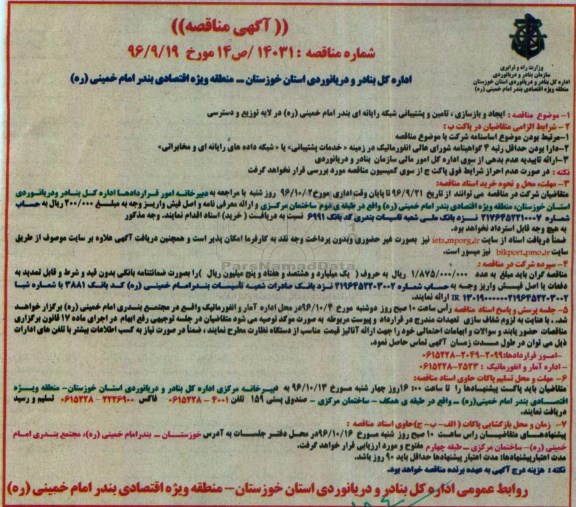 (( آگهی مناقصه ))
شماره مناقصه : ۱۴۰۳۱ /ص۱۴ مورخ ۹۶/۹/۱۹
وزارت راه و ترابری
سازمان بنادر و دریانوردی
اداره کل بنادر و دریانوردی استان خوزستان
منطقه ویژه اقتصادی بندر امام خمینی (ره)
اداره کل بنادر و دریانوردی استان خوزستان – منطقه ویژه اقتصادی بندر امام خمینی (ره)
۱- موضوع مناقصه : ایجاد و بازسازی ، تامین و پشتیبانی شبکه رایانه ای بندر امام خمینی (ره) در لایه توزیع و دسترسی
۲- شرایط الزامی متقاضیان در پاکت ب :
۱-مرتبط بودن موضوع اساسنامه شرکت با موضوع مناقصه
۲-دارا بودن حداقل رتبه ۴ گواهینامه شورای عالی انفورماتیک در زمینه « خدمات پشتیبانی» یا « شبکه داده های رایانه ای و مخابراتی»
۳-ارائه تاییدیه عدم بدهی از سوی اداره کل امور مالی سازمان بنادر و دریانوردی
نکته : در صورت عدم احراز شرایط فوق پاکت ج از سوی کمیسیون مناقصه مورد بررسی قرار نخواهد گرفت
۳- مهلت، محل و نحوه خرید اسناد مناقصه:
متقاضیان شرکت در مناقصه می توانند از تاریخ ۹۶/۹/۲۱ تا پایان وقت اداری مورخ ۹۶/۱۰/۲ روز شنبه با مراجعه به دبیرخانه امور قراردادها اداره کل بنادر و دریانوردی
استان خوزستان، منطقه ویژه اقتصادی بندر امام خمینی (ره) واقع در طبقه ی دوم ساختمان مرکزی و ارائه معرفی نامه و اصل فیش واریز وجه به مبلغ ۲۰۰/۰۰۰ ریال به حساب
شماره ۲۱۷۶۴۵۲۲۱۰۰۰۷ نزد بانک ملی شعبه تاسیسات بندری کد بانک ۶۹۹۱ نسبت به دریافت ( خرید) اسناد اقدام نمایند. وجه مذکور
به هیچ وجه قابل استرداد نخواهد بود.
ضمناً دریافت اسناد از سایت iets.mporg.ir نیز بصورت غیر حضوری وبدون پرداخت وجه نقد به کارفرما امکان پذیر است و همچنین دریافت آگهی علاوه بر سایت موصوف از طریق
سایت bikport.pmo.ir نیز میسور است.
۴- سپرده شرکت در مناقصه :
مناقصه گران باید مبلغ به عدد ۱/۸۷۵/۰۰۰/۰۰۰ ریال به حروف ( یک میلیارد و هشتصد و هفتاد و پنج میلیون ریال ) را بصورت ضمانتنامه بانکی بدون قید و شرط و قابل تمدید به
دفعات یا اصل فیش واریز وجه به حساب شماره ۲۱۹۶۴۵۲۲۰۳۰۰۲ نزد بانک صادرات شعبه تاسیسات بندر امام خمینی (ره) کد بانک ۳۸۸۱ با شماره شبا
ارائه نمایند.
۵- جلسه پرسش و پاسخ اسناد مناقصه راس ساعت ۱۰ صبح روز دوشنبه مورخ ۹۶/۱۰/۴ در محل اداره آمار و انفورماتیک واقع در مجتمع بندری امام خمینی (ره) برگزار خواهد
شد، با عنایت به لزوم شفاف سازی تعهدات مندرج در قرارداد و پیوست مربوطه به صورت موکد توصیه می شود متقاضیان در جلسه توجیهی رفع ابهام در اجرای ماده ۱۷ قانون برگزاری
مناقصات حضور یابند و سوالات و ابهامات احتمالی خود را جهت ارائه آنالیز قیمت مناسب از دستگاه نظارت مطرح نمایند ، ضمناً در صورت نیاز به کسب اطلاعات بیشتر با تلفن های ادارات
ذیل می توان در طول مدت زمان آگهی تماس حاصل نمود.
-امور قراردادها: ۲۰۹۹-۲۰۴۹-۰۶۱۵۲۲۸
-اداره آمار و انفورماتیک : ۲۵۲۳-۰۶۱۵۲۲۸
۶- مهلت و محل تسلیم پاکات حاوی اسناد مناقصه:
متقاضیان باید پاکت پیشنهادها را تا ساعت ۱۶:۰۰ روز چهار شنبه مورخ ۹۶/۱۰/۱۳ به دبیرخانه مرکزی اداره کل بنادر و دریانوردی استان خوزستان- منطقه ویژه
اقتصادی بندر امام خمینی(ره) – واقع در طبقه ی همکف – ساختمان مرکزی – صندوق پستی ۱۵۹ تلفن ۴۰۰۱ - ۰۶۱۵۲۲۸ فاکس ۲۲۲۶۹۰۰ - ۰۶۱۵۲۲۸ تسلیم و رسید
دریافت نمایند.
۷- زمان و محل بازگشایی پاکات ( الف- ب- ج) حاوی اسناد مناقصه :
پیشنهادهای متقاضیان راس ساعت ۱۰ صبح روز شنبه مورخ ۹۶/۱۰/۱۶ در محل دفتر جلسات به آدرس خوزستان – بندر امام خمینی (ره)، مجتمع بندری امام
خمینی (ره)- ساختمان مرکزی – طبقه چهارم مفتوح و مورد ارزیابی قرار خواهد گرفت.
مدت اعتبار پیشنهادها: مدت اعتبار پیشنهادها حداقل باید ۹۰ روز باشد.
نکته : هزینه درج آگهی به عهده برنده مناقصه خواهد بود.
روابط عمومی اداره کل بنادر و دریانوردی استان خوزستان- منطقه ویژه اقتصادی بندر امام خمینی (ره)
ParsNamadData